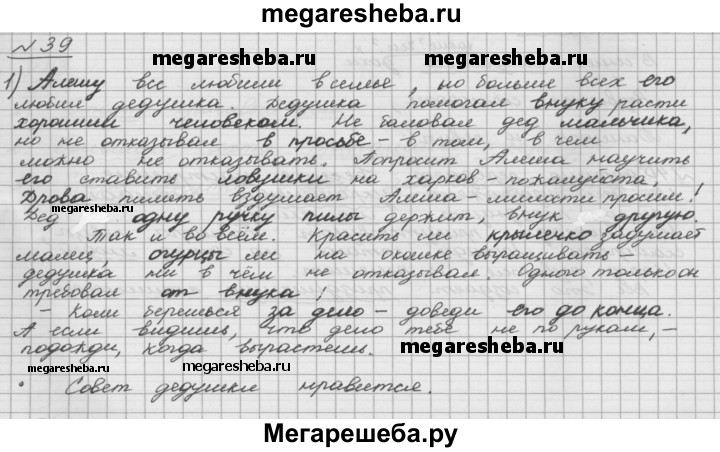 megaresheba.ru
№ 39
megaresheba.ru
megaresheba.ru
1) Алешу все любили в семье, но больше всех его
любил дедушка. Дедушка помогал внуку расти
хорошим человеком. Не баловал дед мальчика,
но не отказывал в просьбе – в том, в чем
можно не отказывать. Попросит Алеша научить
его ставить ловушки на харков – пожалуйста,
Дрова пилить вздумает Алеша – милости просим!
Дед одну ручку пилы держит, внук другую.
megaresheba.ru
Так и во всём. Красить ли крылечко задумает
малец, огурцы ли на окошке выращивать –
дедушка ни в чём не отказывал. Одного только он
требовал от внука:
– Коли берешься за дело – доведи его до конца.
А если видишь, что дело тебе не по рукам, –
подожди, когда вырастешь.
megaresheba.ru
megaresheba.ru
• Совет дедушки нравится.
Мегарешеба.ру